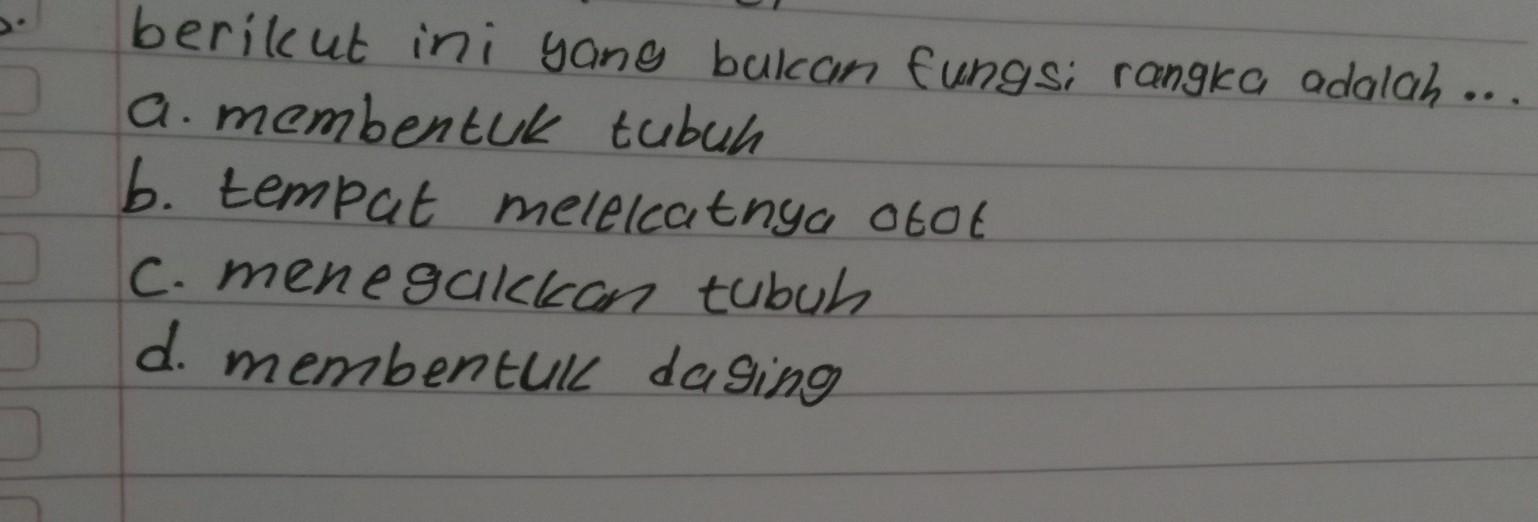 berikut ini yang bukan fungsi rangka adalah...
a. membentuk tubuh
b. tempat melekatnya otot
c. menegakkan tubuh
d. membentuk daging